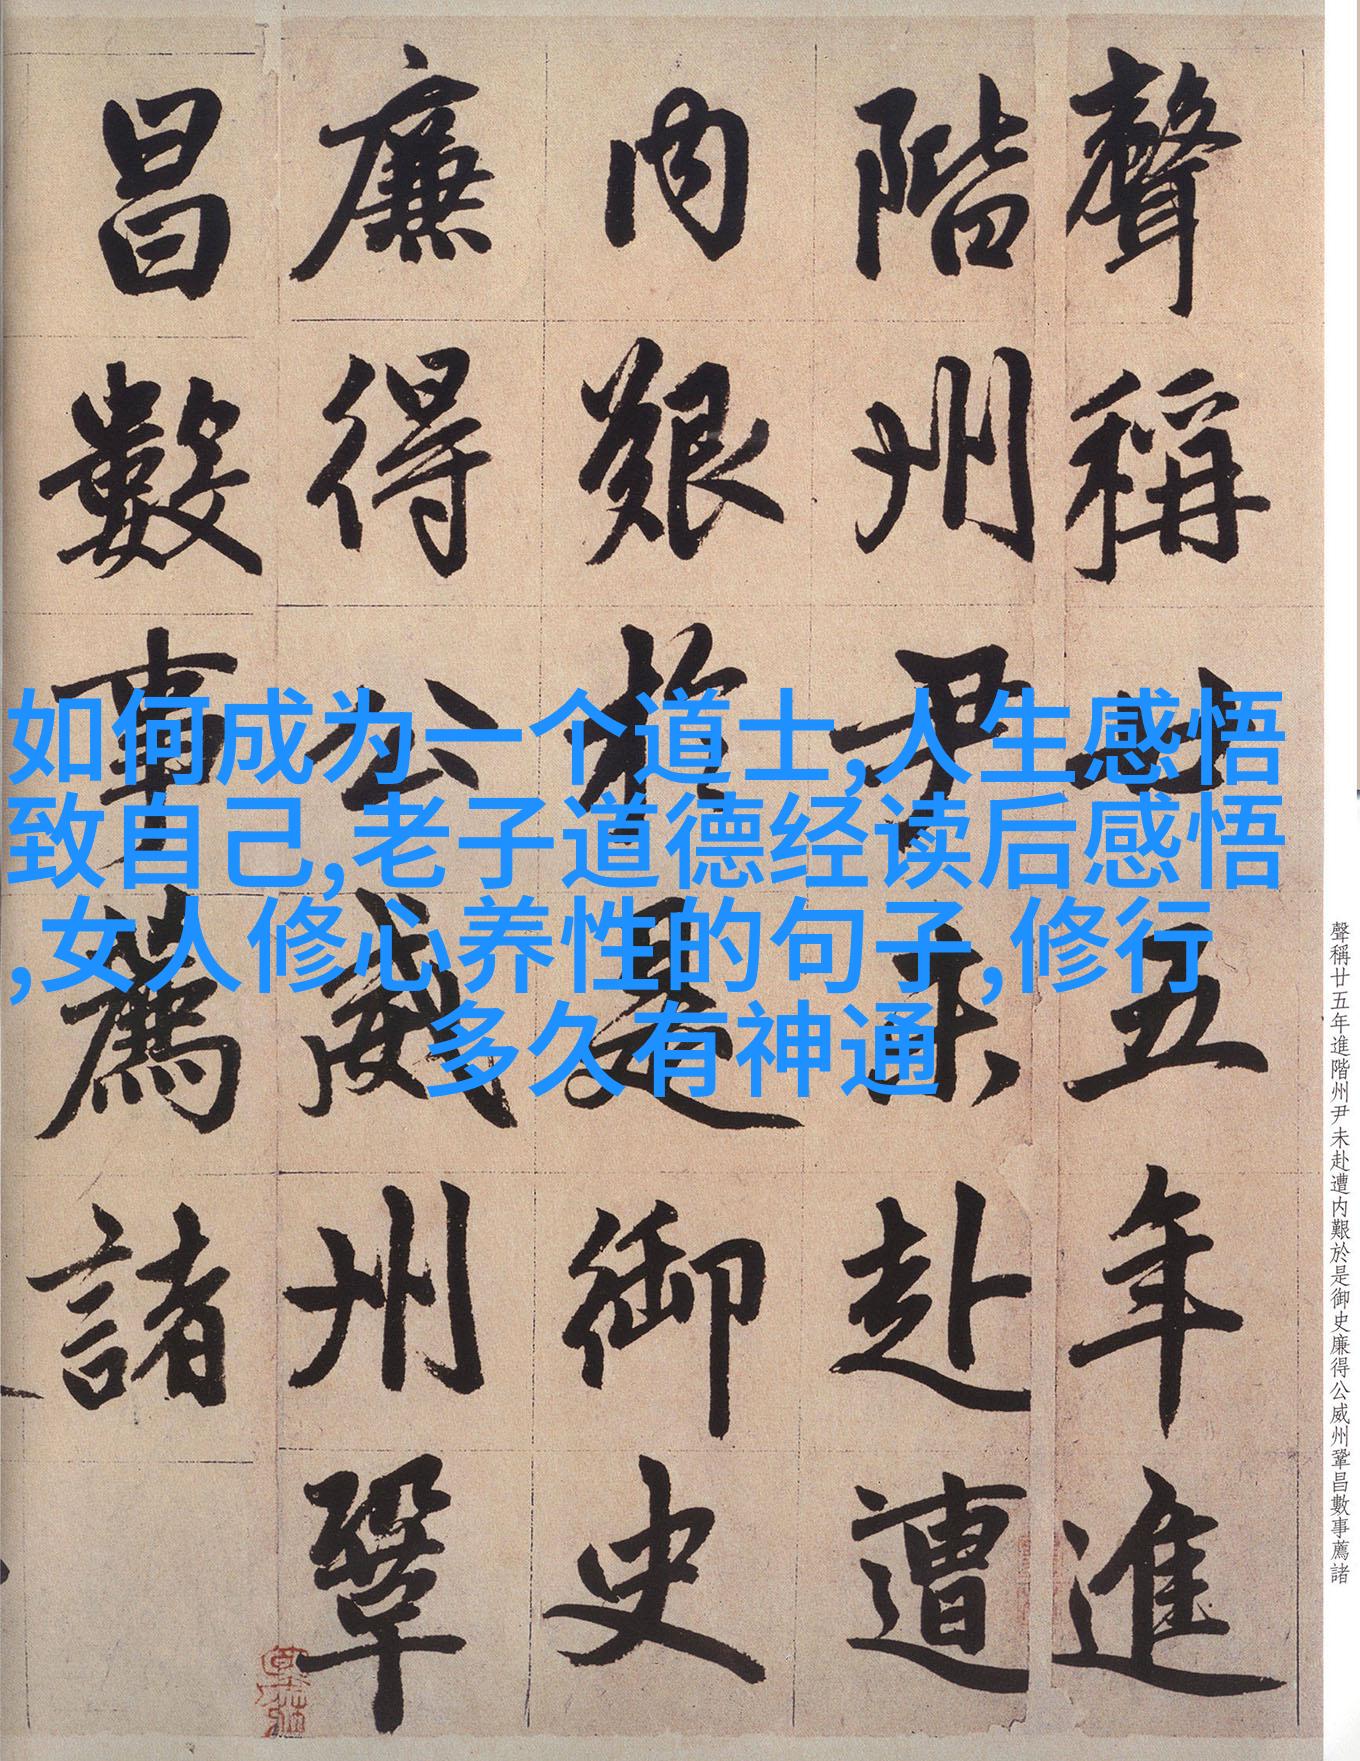 如何成为一个道士,人生感悟
致自己,老子道德经读后感悟
,女人修心养性的句子,修行
多久有神通
聲稱廿五年進
階州尹未赴遭
内艱於是御史
廉得公威州鞏
昌數事薦諸
聲稱廿五年進階州尹未赴遭内艱於是御史廉得公威州鞏昌數事薦諸